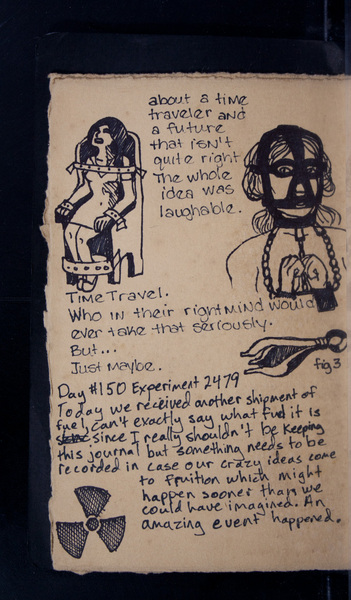 about a time
traveler and
a future
that isn't
quite right
The whole
idea was
laughable.
Time Travel.
Who in their right mind would
ever take that seriously.
But...
Just maybe.
fig 3
Day #150 Experiment 2479
Today we received another shipment of
fuel, can't exactly say what fuel it is
since I really shouldn't be keeping
this journal but something needs to be
recorded in case our crazy ideas come
to fruition which might
happen sooner than we
could have imagined. An
amazing event happened.